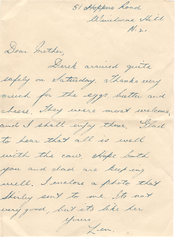 51 Hoppers Road
Winchmore Hill
N. 21
Dear Mother,
Derek arrived quite
safely on Saturday. Thanks very
much for the eggs, butter, and
cheese. They were most welcome,
and I shall enjoy them. Glad
to hear that all is well
with the cow. Hope both
you and dad are keeping
well. I enclose a photo that
Shirley sent to me. Its not
very good, but its like her.
Yours,